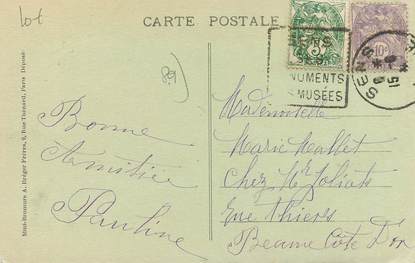 lot
CARTE POSTALE
89
SES
MONUMENTS
MUSÉES
SENS
10c
5c
Bonne
Amitiée
Pauline
Mademoiselle
Marie Mallet
Chez Mr Joliot
Rue Thiers
Beaune Côte D'or
Mise-Bromure A. Breger Frères, 9, Rue Thénard, Paris Déposé